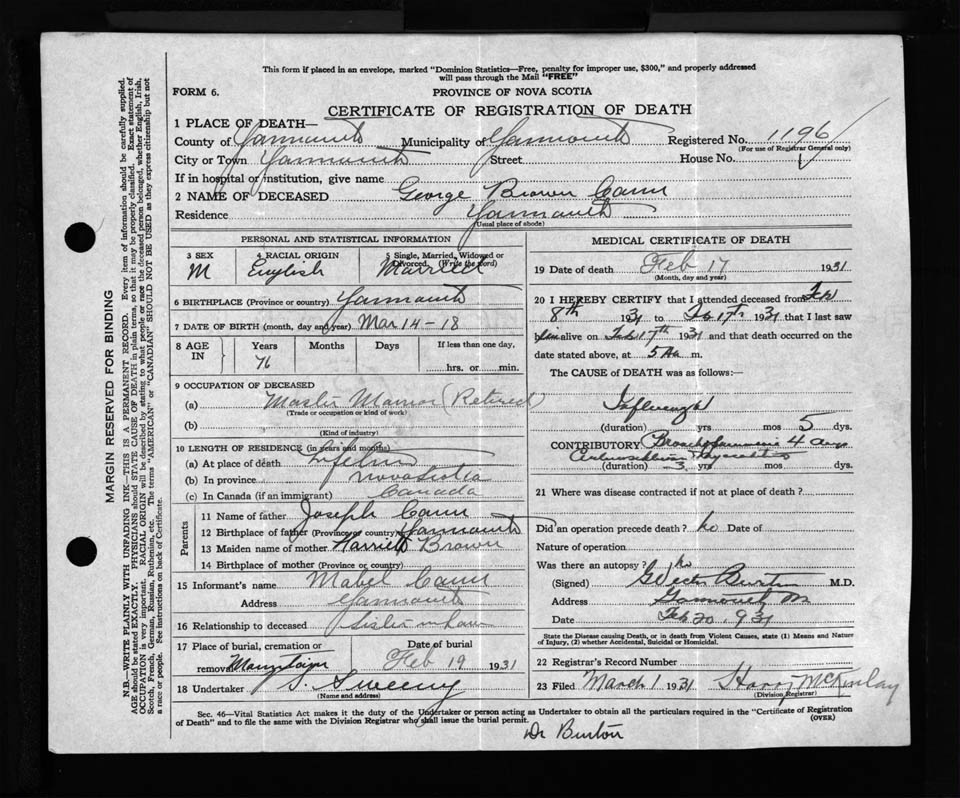 This form if placed in an envelope, marked "Dominion Statistics—Free, penalty for improper use, $300," and properly addressed
will pass through the Mail "FREE"
FORM 6.
PROVINCE OF NOVA SCOTIA
CERTIFICATE OF REGISTRATION OF DEATH
1 PLACE OF DEATH—
County of Yarmouth Municipality of Yarmouth Registered No. 1196
(For use of Registrar General only)
City or Town Yarmouth Street House No.
If in hospital or institution, give name
2 NAME OF DECEASED George Brown Cann
Residence Yarmouth
(Usual place of abode)
PERSONAL AND STATISTICAL INFORMATION
3 SEX 4 RACIAL ORIGIN 5 Single, Married, Widowed or Divorced. (Write the word)
M English Married
6 BIRTHPLACE (Province or country) Yarmouth
7 DATE OF BIRTH (month, day and year) Mar 14-18
8 AGE IN Years Months Days If less than one day,
76 hrs. or min.
9 OCCUPATION OF DECEASED
(a) Master Mariner (Retired)
(Trade or occupation or kind of work)
(b)
(Kind of industry)
10 LENGTH OF RESIDENCE (in years and months)
(a) At place of death Lifetime
(b) In province Nova Scotia
(c) In Canada (if an immigrant) Canada
Parents
11 Name of father Joseph Cann
12 Birthplace of father (Province or country) Yarmouth
13 Maiden name of mother Harriett Brown
14 Birthplace of mother (Province or country)
15 Informant's name Mabel Cann
Address Yarmouth
16 Relationship to deceased Sister in Law
17 Place of burial, cremation or Date of burial
removal Feb 19 1931
18 Undertaker Sweeny
(Name and address)
MEDICAL CERTIFICATE OF DEATH
19 Date of death Feb 17 1931
(Month, day and year)
20 I HEREBY CERTIFY that I attended deceased from Feb
8th 1931 to Feb 17th 1931 that I last saw
him alive on Feb 17th 1931 and that death occurred on the
date stated above, at 5 A m.
The CAUSE of DEATH was as follows:—
Influenza
(duration) yrs mos 5 dys.
CONTRIBUTORY Broncho Pneumonia 4 days
(duration) 3 yrs mos dys.
21 Where was disease contracted if not at place of death?
Did an operation precede death? no Date of
Nature of operation
Was there an autopsy? no
(Signed) Burton M.D.
Address Yarmouth
Date Feb 20, 931
State the Disease causing Death, or in death from Violent Causes, state (1) Means and Nature
of Injury, (2) whether Accidental, Suicidal or Homicidal.
22 Registrar's Record Number
23 Filed March 1 1931 Harry McKinlay
(Division Registrar)
Sec. 46—Vital Statistics Act makes it the duty of the Undertaker or person acting as Undertaker to obtain all the particulars required in the "Certificate of Registration
of Death" and to file the same with the Division Registrar who shall issue the burial permit.
(OVER)
Dr Burton
MARGIN RESERVED FOR BINDING
N.B.—WRITE PLAINLY WITH UNFADING INK—THIS IS A PERMANENT RECORD. Every item of information should be carefully supplied.
AGE should be stated EXACTLY. PHYSICIANS should STATE CAUSE OF DEATH in plain terms, so that it may be properly classified. Exact statement of
OCCUPATION is very important. RACIAL ORIGIN will be described by stating to what people or race the deceased person belonged, whether English, Irish,
Scotch, French, German, Russian, Ruthenian, etc. The terms "AMERICAN" or "CANADIAN" SHOULD NOT BE USED as they express citizenship but not
a race or people. See instructions on back of Certificate.